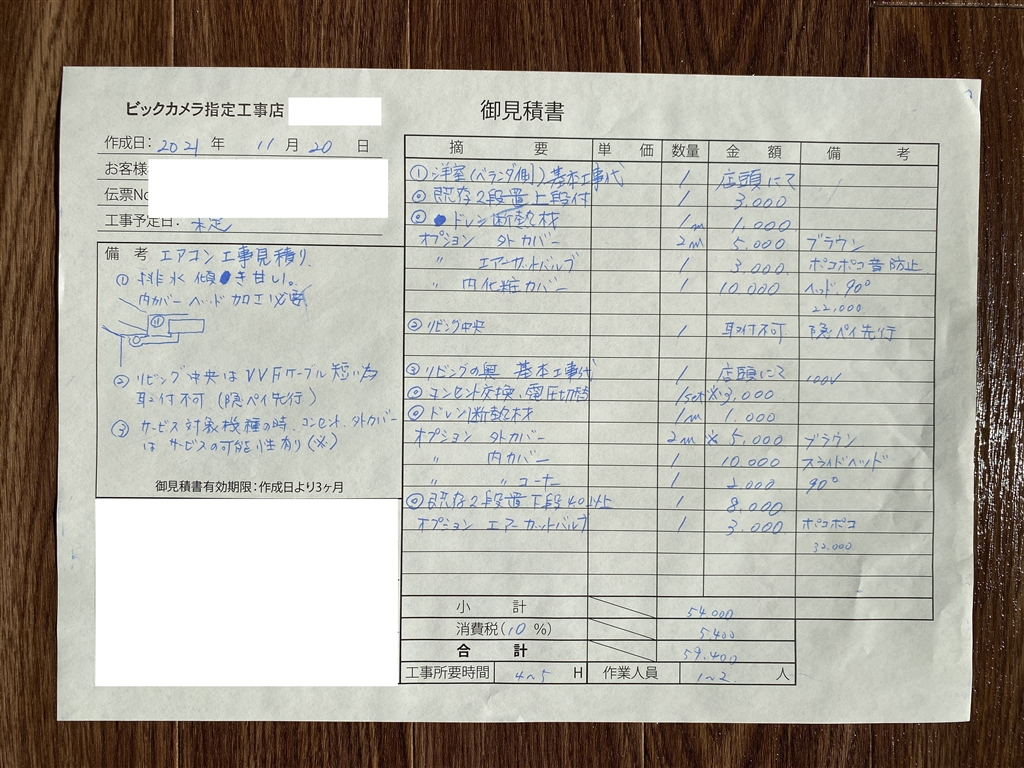 ビックカメラ指定工事店
御見積書
作成日: 2021 年 11 月 20 日
お客様
伝票No
工事予定日: 未定
備考 エアコン工事見積り
① 排水傾き甘い。
内カバーヘッド加工必要
② リビング中央はVVFケーブル短い為
取付不可 (隠ペイ先行)
③ サービス対象機種の時、コンセント、外カバー
はサービスの可能性有り(※)
御見積書有効期限:作成日より3ヶ月
摘要 単価 数量 金額 備考
① 洋室(ベランダ側)基本工事代 1 店頭にて
既存2段置上段付 1 3,000
ドレン断熱材 1m 1,000
オプション 外カバー 2m 5,000 ブラウン
〃 エアーカットバルブ 1 3,000 ポコポコ音防止
〃 内化粧カバー 1 10,000 ヘッド、90°
22,000
② リビング中央 1 取付不可 隠ペイ先行
③ リビングの奥 基本工事代 1 店頭にて 100V
コンセント交換、電圧切替 1set ※3,000
ドレン断熱材 1m 1,000
オプション 外カバー 2m ※5,000 ブラウン
〃 内カバー 1 10,000 スライドヘッド
〃 〃 コーナー 1 2,000 90°
既存2段置下段40以上 1 8,000
オプション エアーカットバルブ 1 3,000 ポコポコ
32,000
小計 54,000
消費税(10%) 5,400
合計 59,400
工事所要時間 4~5 H 作業人員 1~2 人